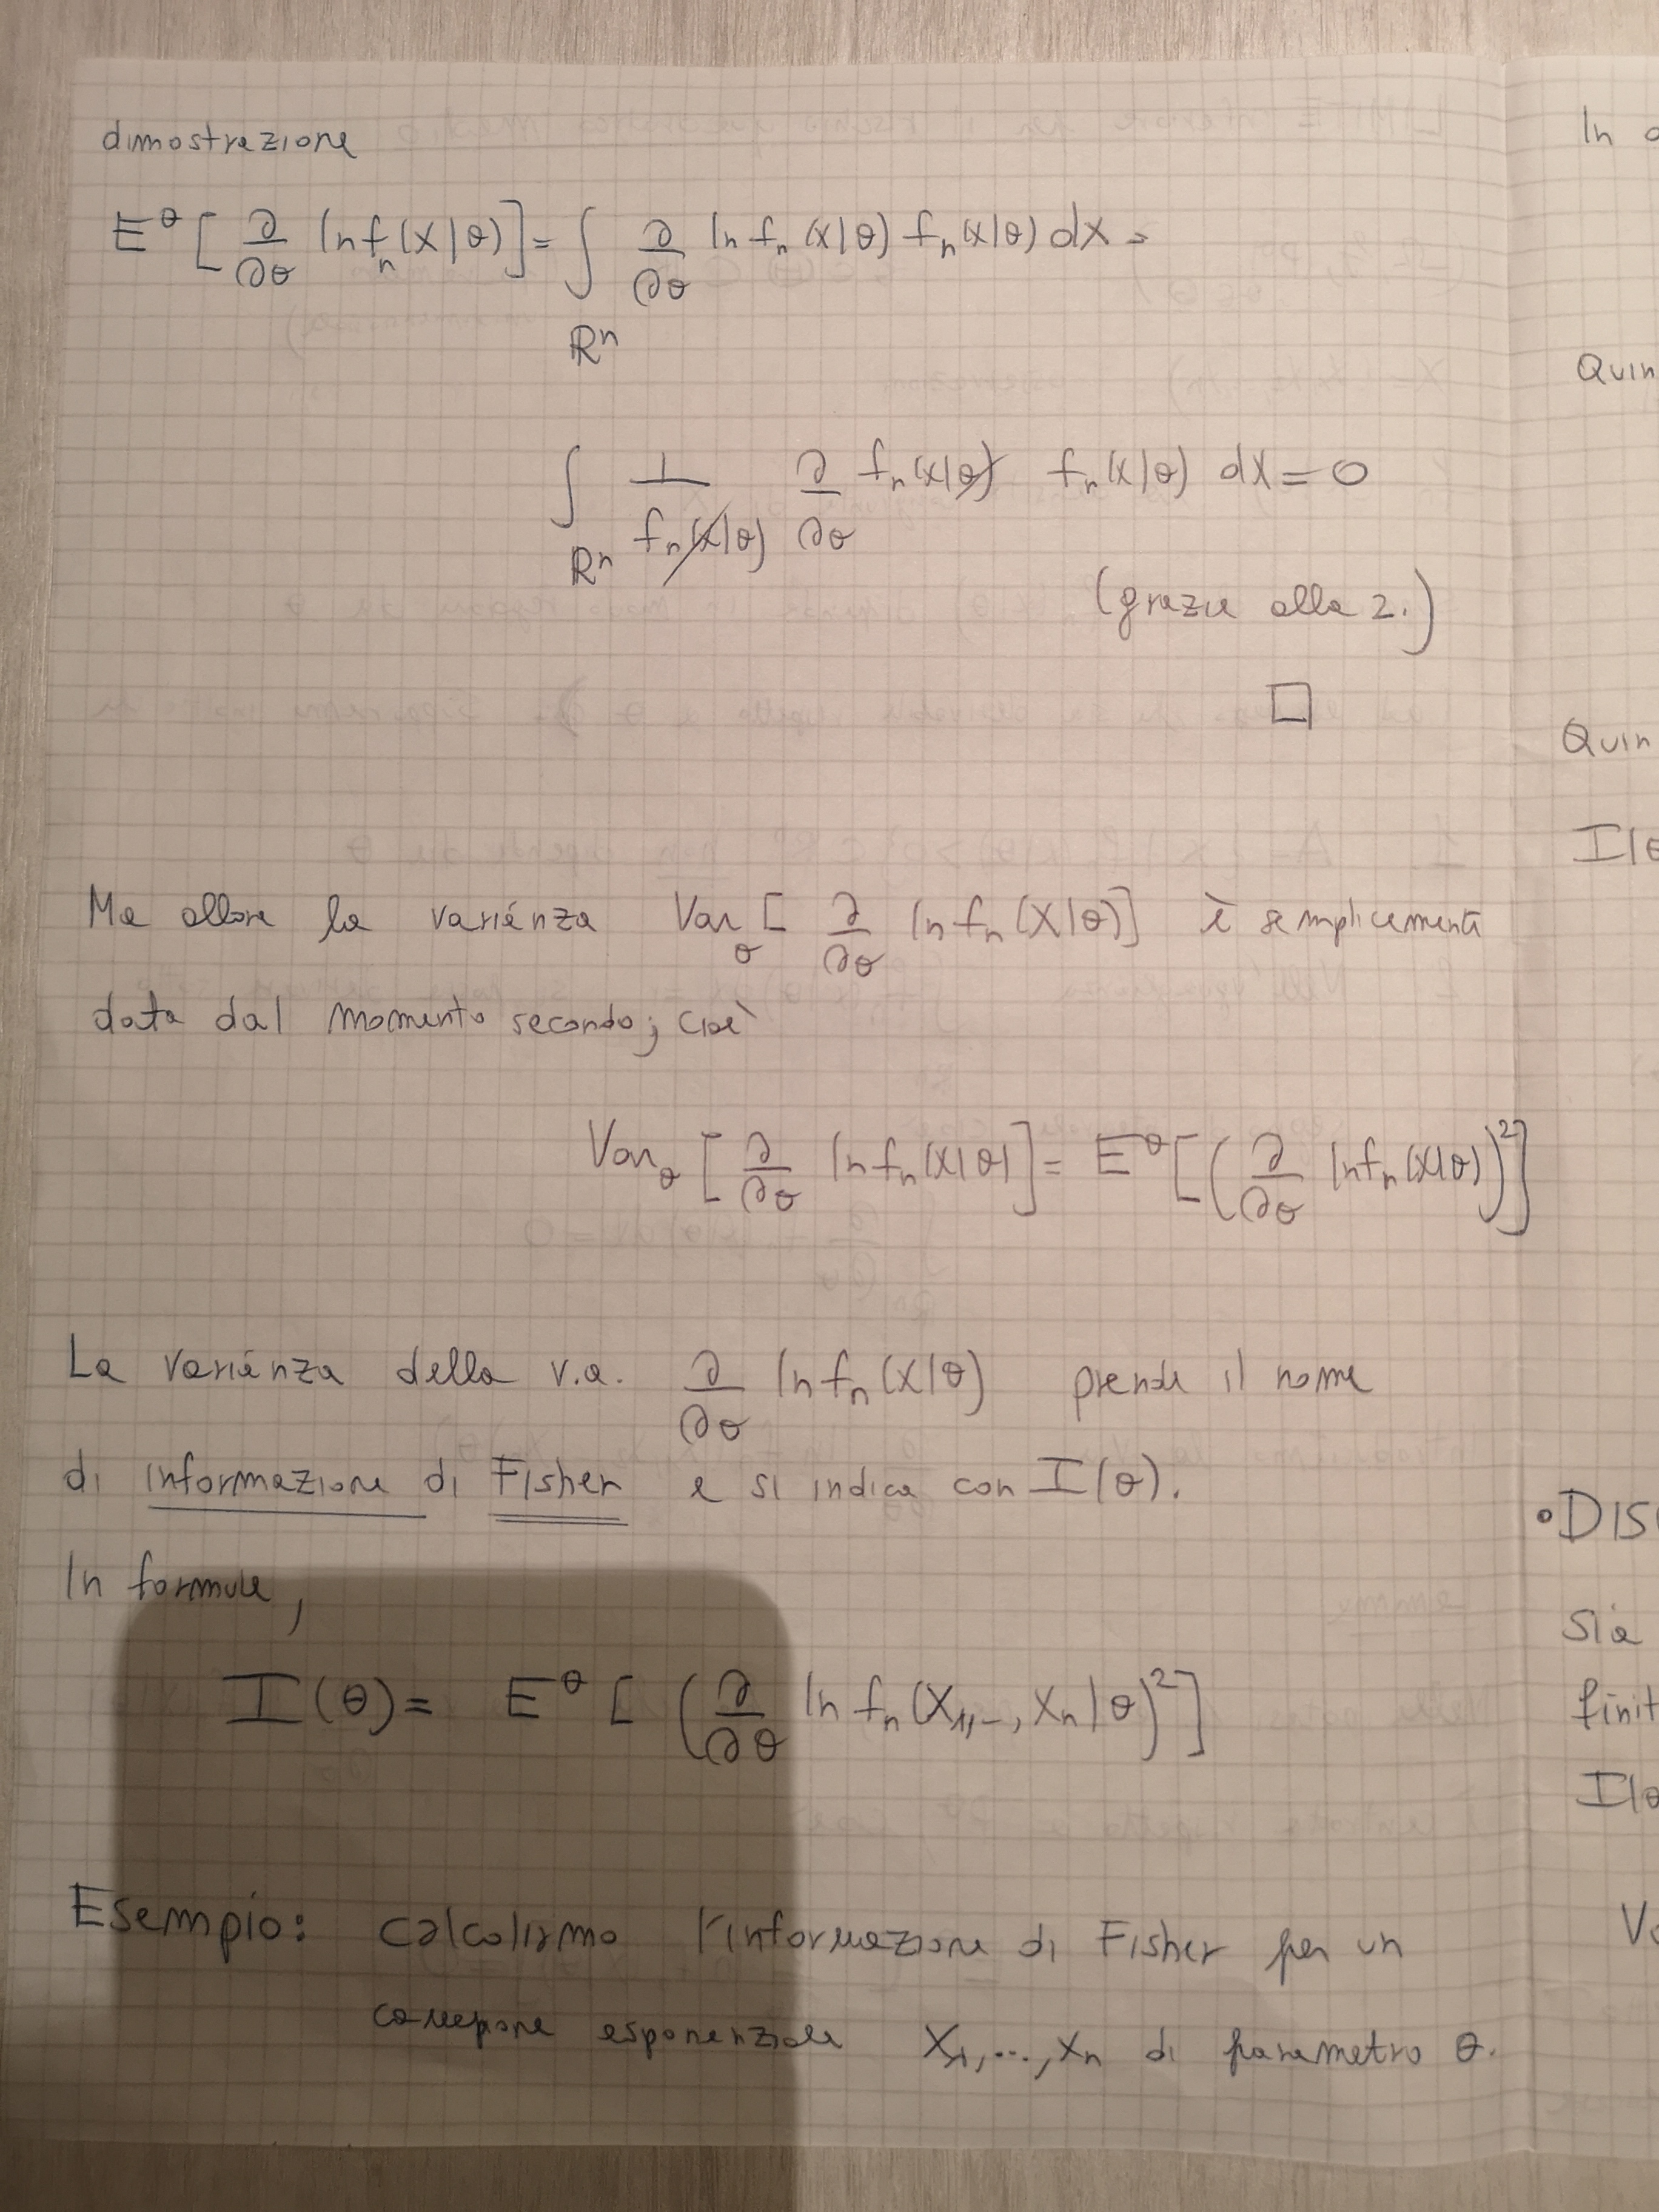 dimostrazione
E^θ [ ∂/∂θ ln f_n(X|θ) ] = ∫_{R^n} ∂/∂θ ln f_n(x|θ) f_n(x|θ) dx =
∫_{R^n} 1/f_n(x|θ) ∂/∂θ f_n(x|θ) f_n(x|θ) dx = 0
(grazie alla 2.)
□
Ma allora la varianza Var_θ [ ∂/∂θ ln f_n(X|θ) ] è semplicemente
data dal momento secondo; cioè
Var_θ [ ∂/∂θ ln f_n(X|θ) ] = E^θ [ ( ∂/∂θ ln f_n(X|θ) )^2 ]
La varianza della v.a. ∂/∂θ ln f_n(X|θ) prende il nome
di informazione di Fisher e si indica con I(θ).
In formule,
I(θ) = E^θ [ ( ∂/∂θ ln f_n(X_1,-,X_n|θ) )^2 ]
Esempio: calcoliamo l'informazione di Fisher per un
campione esponenziale X_1,...,X_n di parametro θ.
In
Quin
Quin
I(θ
•DIS
Sia
finit
I(θ
Va